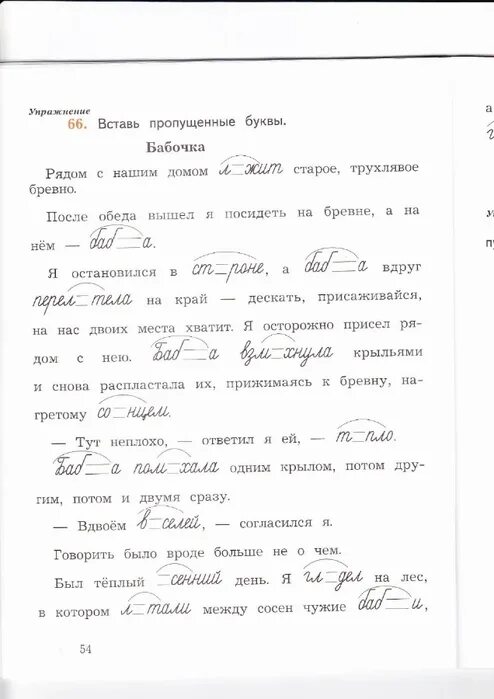 Упражнение
66. Вставь пропущенные буквы.
Бабочка
Рядом с нашим домом л_жит старое, трухлявое
бревно.
После обеда вышел я посидеть на бревне, а на
нём — баб__а.
Я остановился в ст_роне, а баб__а вдруг
перел_тела на край — дескать, присаживайся,
на нас двоих места хватит. Я осторожно присел ря-
дом с нею. Баб__а взм_хнула крыльями
и снова распластала их, прижимаясь к бревну, на-
гретому со_нцем.
— Тут неплохо, — ответил я ей, — т_пло.
Баб__а пом_хала одним крылом, потом дру-
гим, потом и двумя сразу.
— Вдвоём в_селей, — согласился я.
Говорить было вроде больше не о чем.
Был тёплый _сенний день. Я гл_дел на лес,
в котором л_тали между сосен чужие баб__и,
54